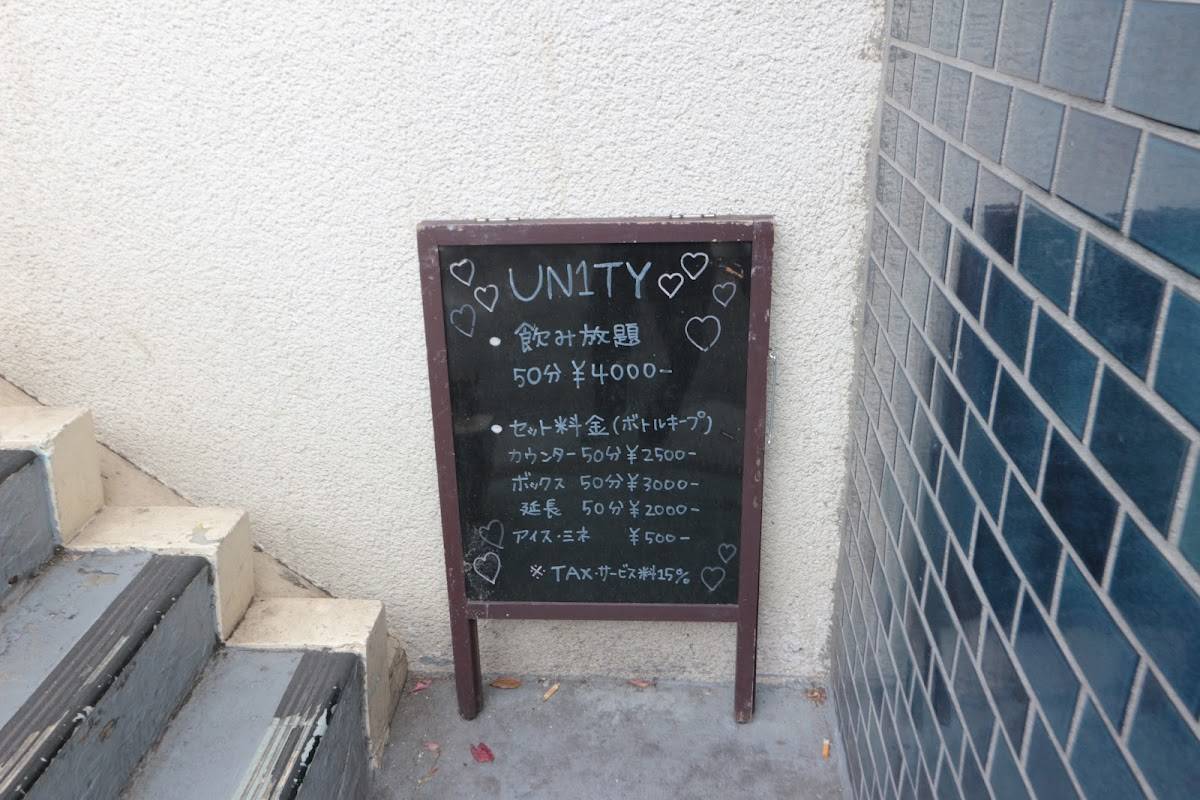 UN1TY
• 飲み放題
50分 ¥4000-
• セット料金(ボトルキープ)
カウンター 50分 ¥2500-
ボックス 50分 ¥3000-
延長 50分 ¥2000-
アイス・ミネ ¥500-
※ TAX・サービス料15%